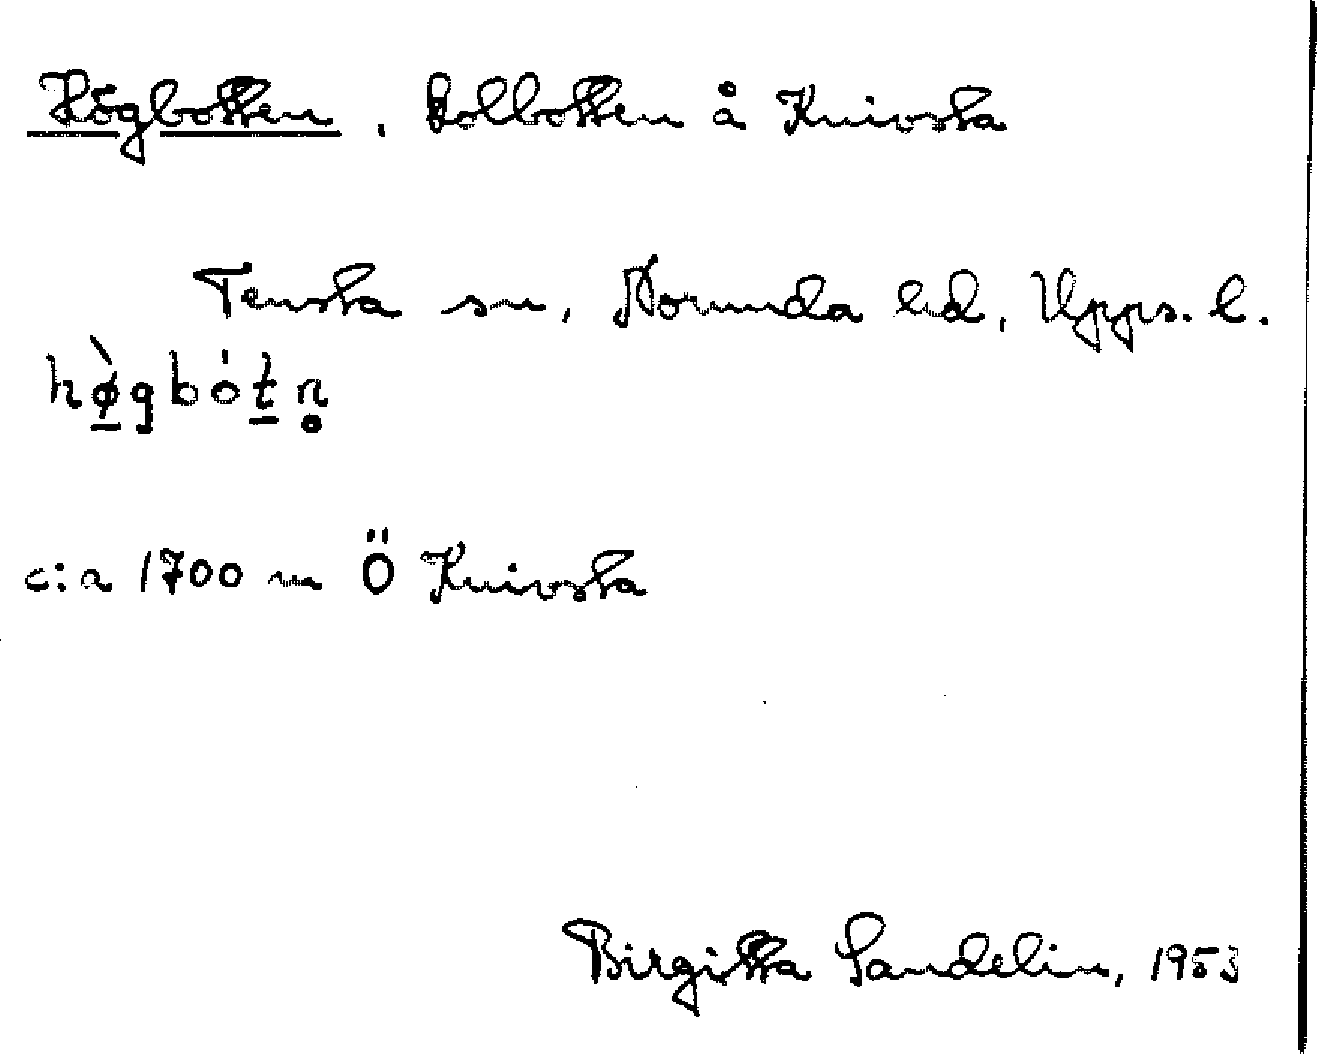 Högbotten, Kolbotten å Knivsta
Tensta sn, Norunda hd, Upps. l.
hø̠̀gbót̠n̥
c:a 1700 m Ö Knivsta
Birgitta Sandelin, 1953